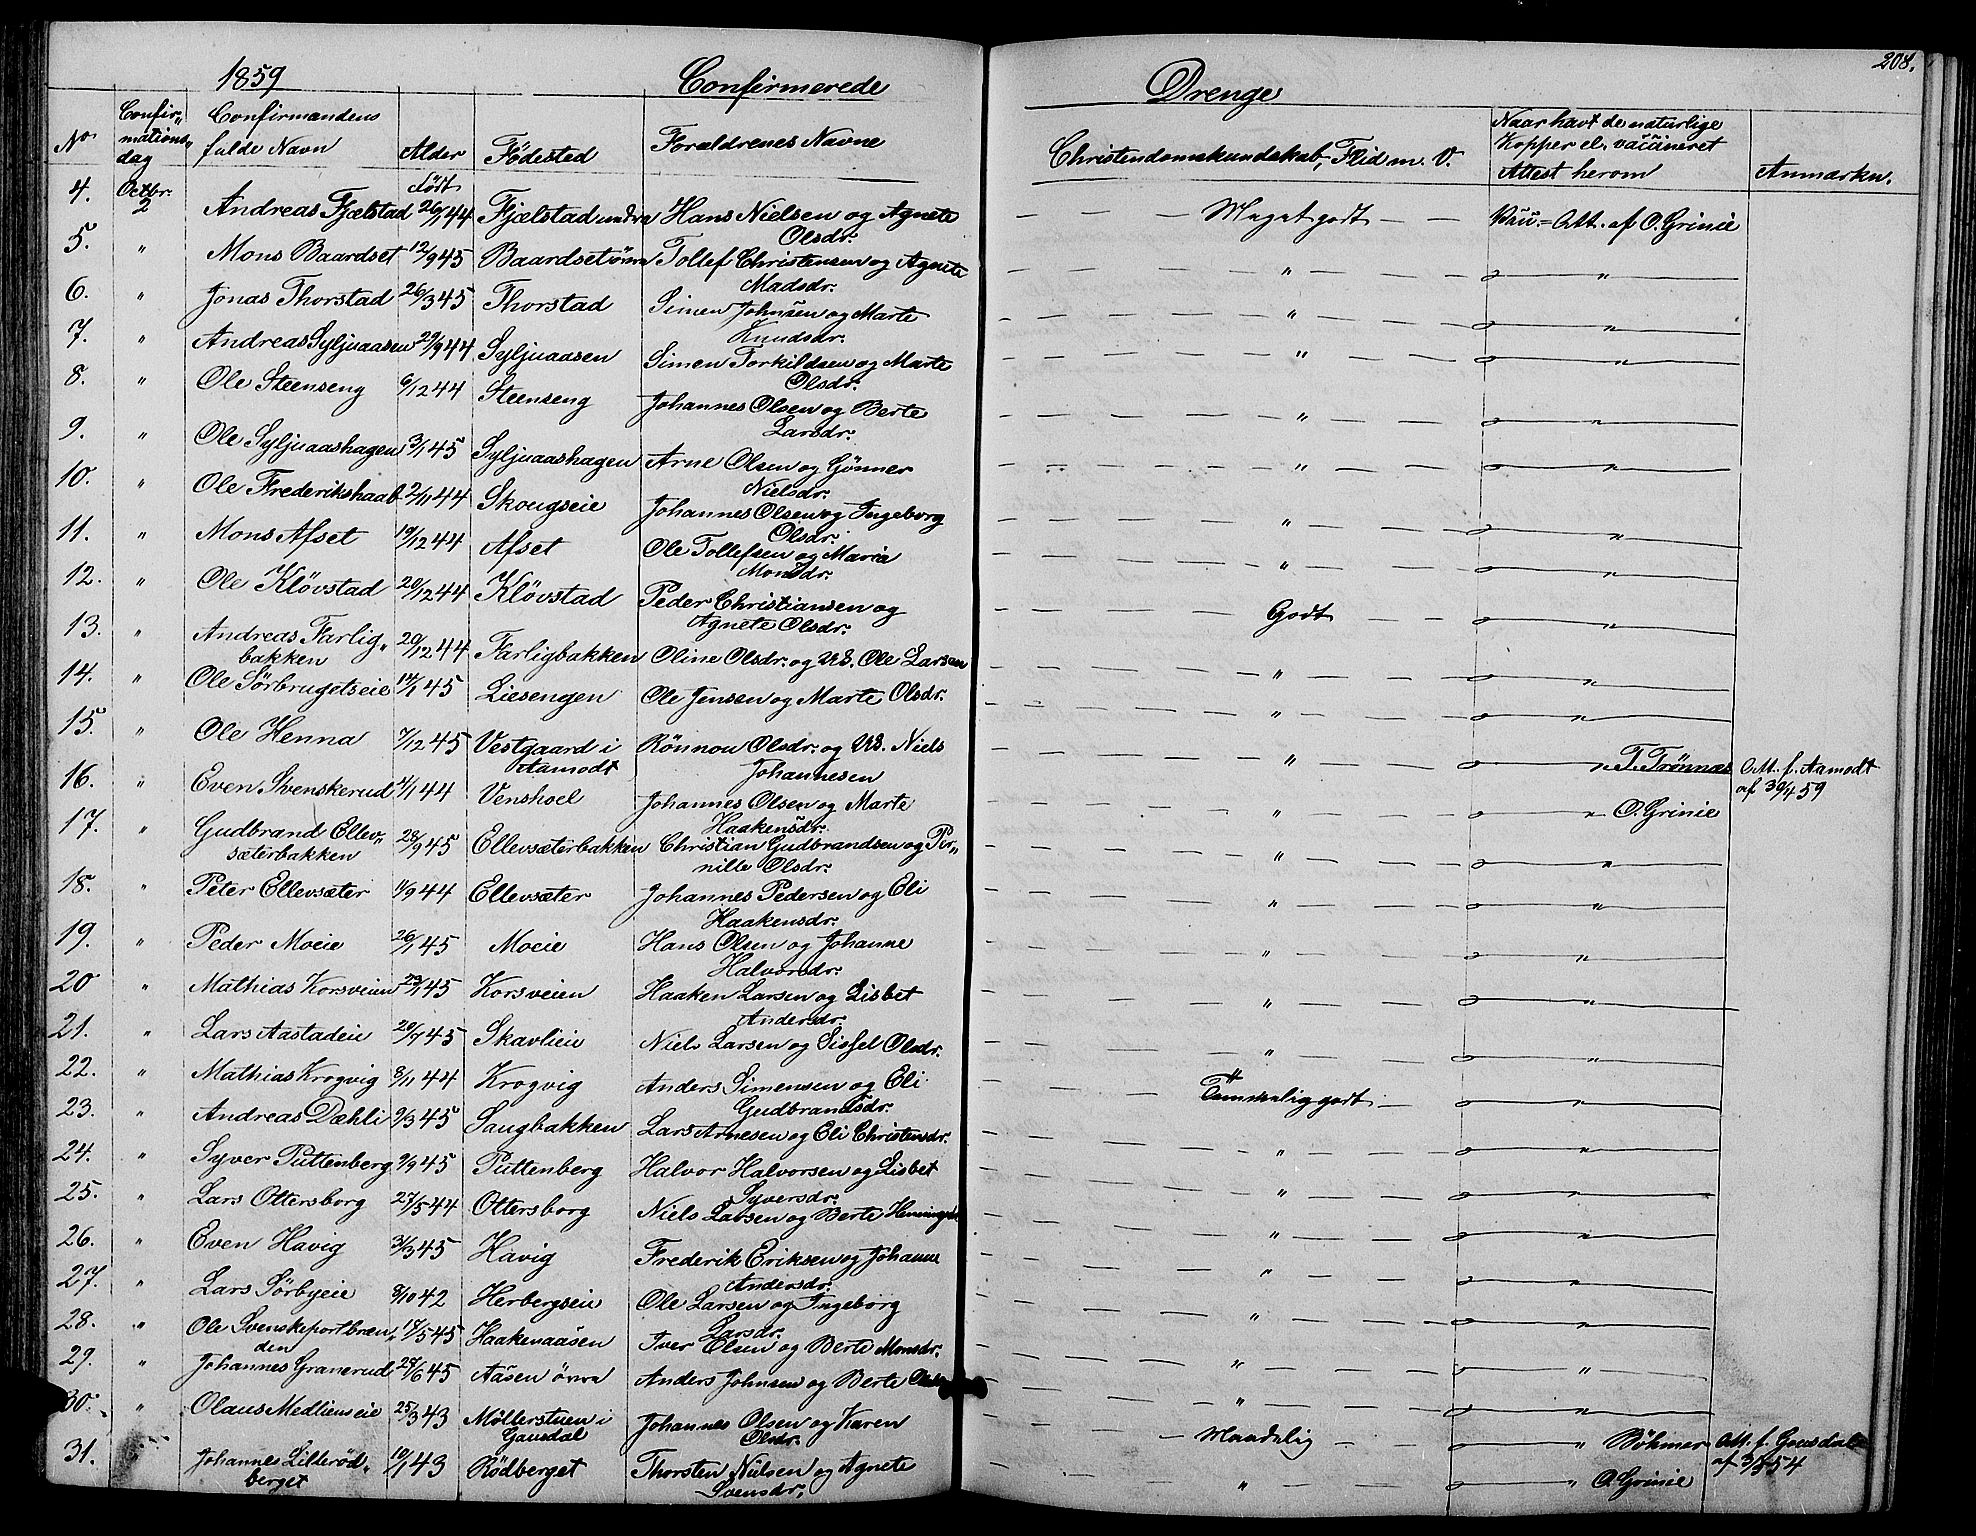 1859 Confirmerede Drenge 208.
No Confir„mations„dag Confirmandens fulde Navn Alder Fødested Forældrenes Navne Christendomskundskab, Flid m. V. Naar havt de naturlige Kopper el. vaccineret Attest herom Anmærkn.
Født
4. Octbr. 2 Andreas Fjælstad 26/1 44 Fjælstad undre Hans Nielsen og Agnete Olsdr. — Meget godt — Att. af O. Grinie
5. „ Mons Baardset 12/9 45 Baardset övre Tollef Christensen og Agnete Madsdr. „ „
6. „ Jonas Thorstad 26/3 45 Thorstad Simen Johnsen og Marte Knudsdr. „ „
7. „ Andreas Syljuaasen 29/9 44 Syljuaasen Simen Torkildsen og Marte Olsdr. „ „
8. „ Ole Steenseng 6/12 44 Steenseng Johannes Olsen og Berte Larsdr. „ „
9. „ Ole Syljuaashagen 3/1 45 Syljuaashagen Arne Olsen og Gönner Nielsdr. „ „
10. „ Ole Frederikshaab 2/11 44 Skougseie Johannes Olsen og Ingeborg Olsdr. „ „
11. „ Mons Afset 19/12 44 Afset Ole Tollefsen og Maria Monsdr. „ „
12. „ Ole Klövstad 20/12 44 Klövstad Peder Christiansen og Agnete Olsdr. Godt „
13. „ Andreas Farlig„bakken 20/12 44 Farligbakken Oline Olsdr. og Ole Larsen „ „
14. „ Ole Sörbrugetseie 14/1 45 Liesengen Ole Jensen og Marte Olsdr. „ „
15. „ Ole Henna 7/12 45 Vestgaard i Aamodt Rönnou Olsdr. og Niels Johannesen „ „ T. Trönnæs Att. f. Aamodt af 30/4 59
16. „ Even Svenskerud 4/1 44 Venshoel Johannes Olsen og Marte Haakensdr. „ „ O. Grinie
17. „ Gudbrand Ellev„sæterbakken 28/9 45 Ellevsæterbakken Christian Gudbrandsen og Per„nille Olsdr. „ „
18. „ Peter Ellevsæter 11/9 44 Ellevsæter Johannes Pedersen og Eli Haakensdr. „ „
19. „ Peder Moeie 26/1 45 Moeie Hans Olsen og Johanne Halvorsdr. „ „
20 „ Mathias Korsveien 29/1 45 Korsveien Haaken Larsen og Lisbet Andersdr. „ „
21. „ Lars Aastadeie 20/7 45 Skavlieie Niels Larsen og Sissel Olsdr. „ „
22. „ Mathias Krogvig 8/11 44 Krogvig Anders Simensen og Eli Gudbrandsdr. Temmelig godt „
23. „ Andreas Dæhli 9/3 45 Saugbakken Lars Arnesen og Eli Christensdr. „ „
24. „ Syver Puttenberg 9/9 45 Puttenberg Halvor Halvorsen og Lisbet Syversdr. „ „
25. „ Lars Ottersborg 27/5 44 Ottersborg Niels Larsen og Berte „ „
26. „ Even Havig 31/3 45 Havig Frederik Eriksen og Johanne Andersdr. „ „
27. „ Lars Sörbyeie 8/10 42 Herbergseie Ole Larsen og Ingeborg Larsdr. „ „
28. „ Ole Svenskeportbræn„den 17/5 45 Haakenaasen Iver Olsen og Berte Monsdr. „ „
29. „ Johannes Granerud 27/6 45 Aasen övra Anders Johnsen og Berte „ „
30. „ Olaus Medlienseie 25/3 43 Möllerstuen i Gausdal Johannes Olsen og Karen Olsdr. Maadelig „ Böhmer Att. f. Gausdal af 3/5 54
31. Johannes Lilleröd„berget 10/1 43 Rödberget Thorsten Nilsen og Agnete Svensdr. „ „ O. Grinie